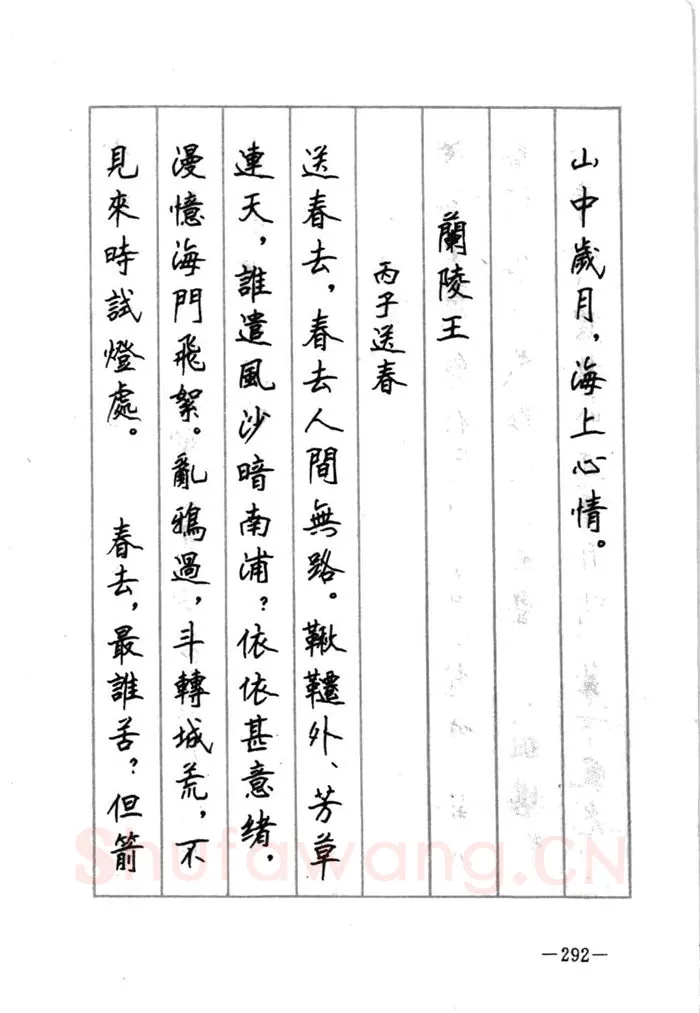 山中歲月，海上心情。
蘭陵王
丙子送春
送春去，春去人間無路。鞦韆外、芳草
連天，誰遣風沙暗南浦？依依甚意緒，
漫憶海門飛絮。亂鴉過，斗轉城荒，不
見來時試燈處。　春去，最誰苦？但箭
Shufawang.CN
—292—